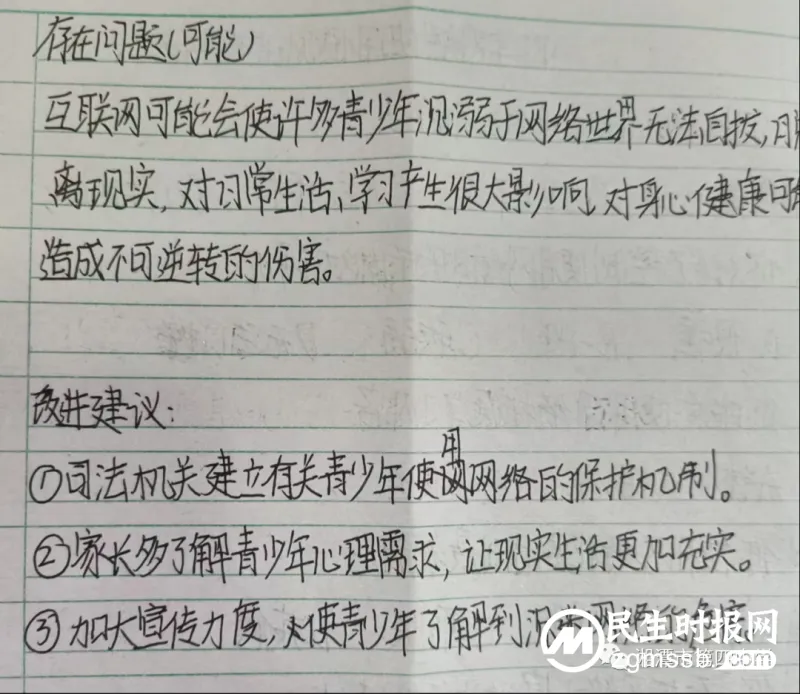 存在问题(可能)
互联网可能会使许多青少年沉溺于网络世界无法自拔,
离现实,对日常生活、学习产生很大影响,对身心健康可
造成不可逆转的伤害。
改进建议:
①司法机关建立有关青少年使用网络的保护机制。
②家长多了解青少年心理需求,让现实生活更加充实。
③加大宣传力度,使青少年了解到沉
民生时报网
gmssb.com